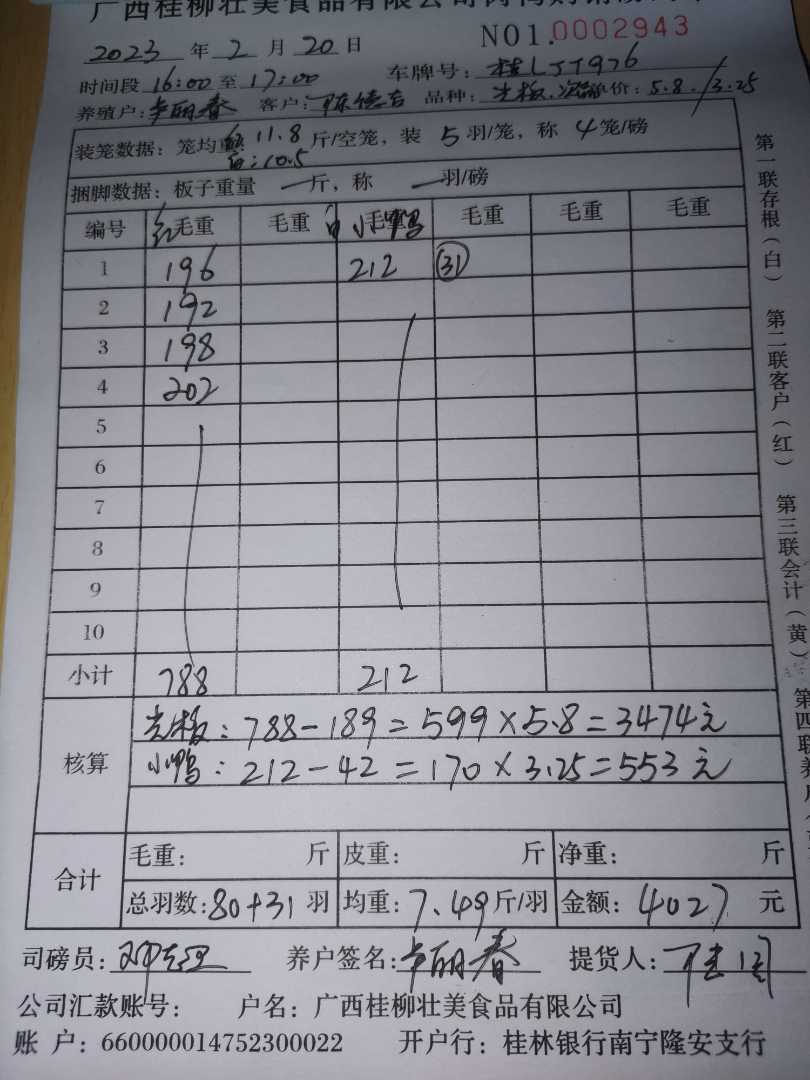 广西桂柳壮美食品有限公司
NO1.0002943
2023 年 2 月 20 日
时间段 16:00 至 17:00 车牌号: 桂LJT976
养殖户: 卢丽春 客户: 品种: 光板. 价: 5.8./3.25
装笼数据: 笼均重 红: 11.8 斤/空笼, 装 5 羽/笼, 称 4 笼/磅
白: 10.5
捆脚数据: 板子重量 一 斤, 称 一 羽/磅
编号 红 毛重 毛重 白 小鸭 毛重 毛重 毛重 毛重
1 196 212 (31)
2 192
3 198
4 202
5
6
7
8
9
10
小计 788 212
核算
光板: 788-189=599×5.8=3474元
小鸭: 212-42=170×3.25=553元
合计
毛重: 斤 皮重: 斤 净重: 斤
总羽数: 80+31 羽 均重: 7.49 斤/羽 金额: 4027 元
司磅员: 养户签名: 卢丽春 提货人:
公司汇款账号: 户名: 广西桂柳壮美食品有限公司
账 户: 660000014752300022 开户行: 桂林银行南宁隆安支行
第一联存根(白)
第二联客户(红)
第三联会计(黄)
第四联养户